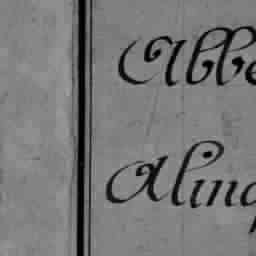 Abbe
Alinq